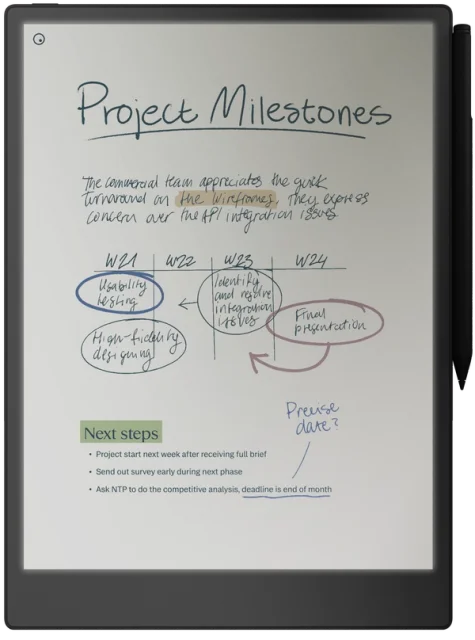 Project Milestones
The commercial team appreciates the quick
turnaround on the wireframes, they express
concern over the API integration issues
W21 W22 W23 W24
Usability
testing
Identify
and resolve
integration
issues
High-fidelity
designing
Final
presentation
Precise
date?
Next steps
• Project start next week after receiving full brief
• Send out survey early during next phase
• Ask NTP to do the competitive analysis, deadline is end of month